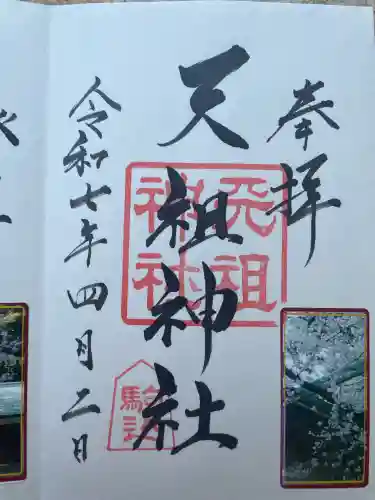 奉拝
天祖神社
天祖神社
令和七年四月二日
駒込